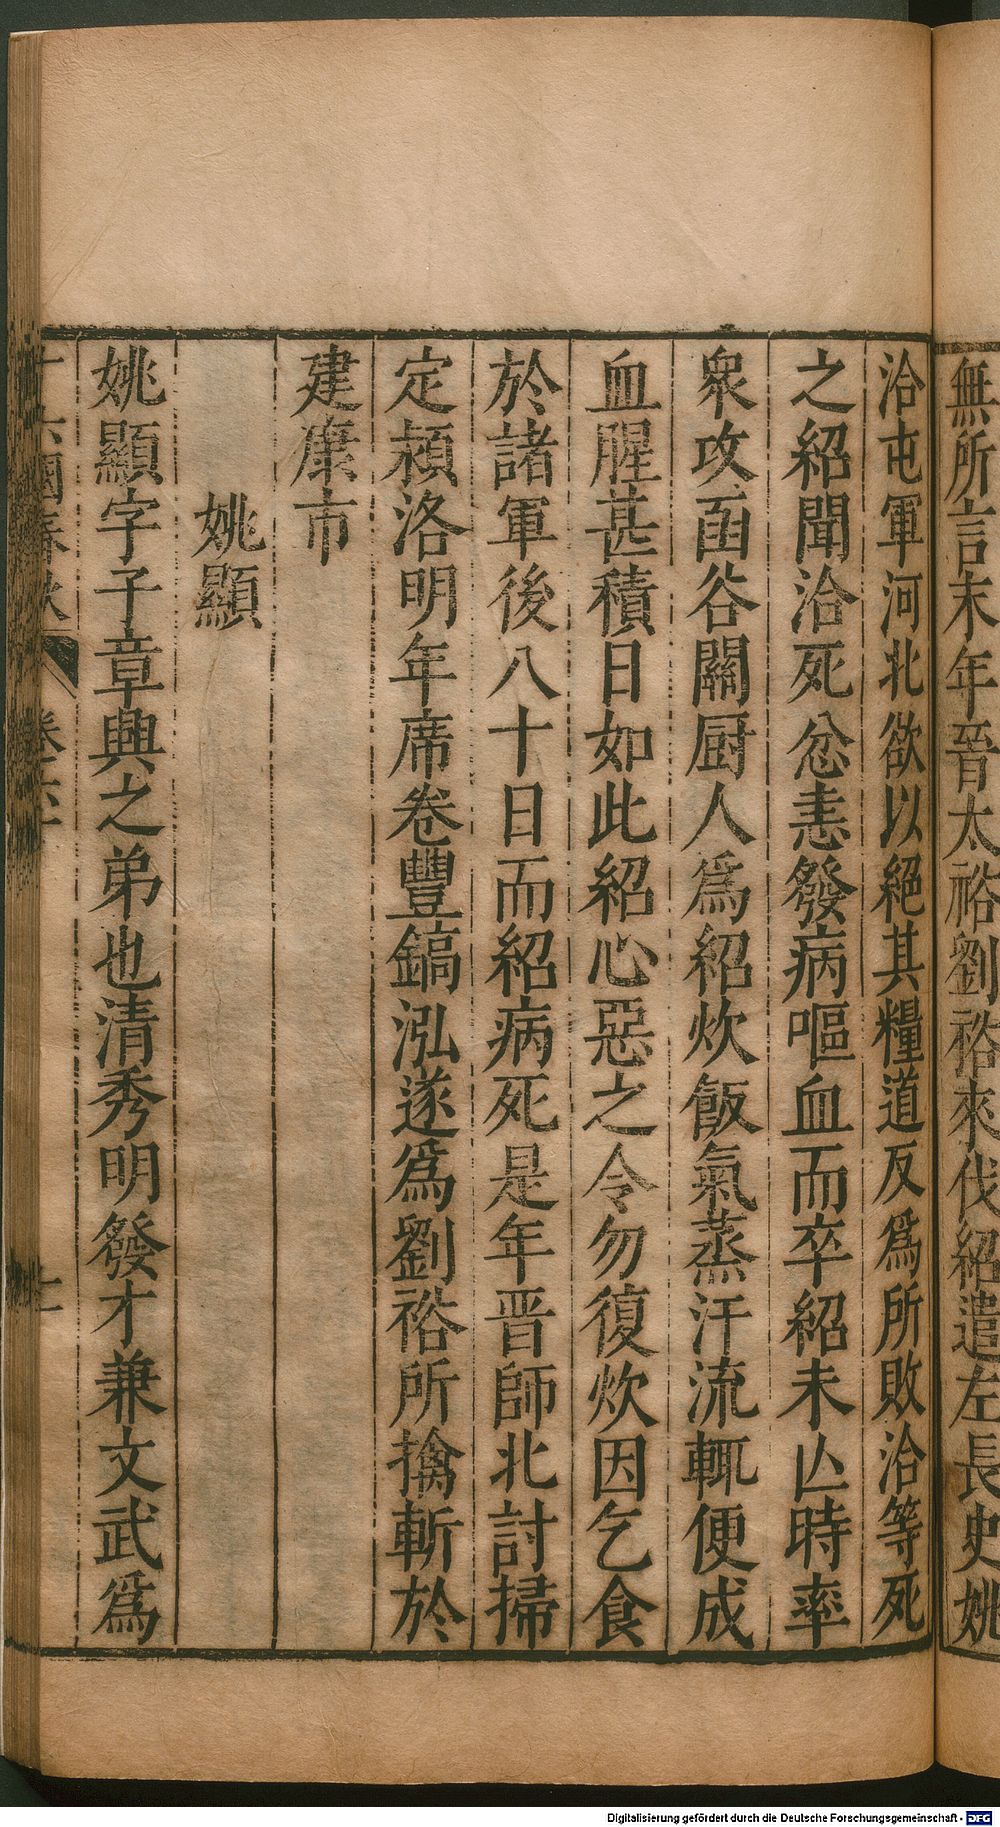 無所言末年晉太裕劉裕來伐紹遣左長史姚
洽屯軍河北欲以絕其糧道反爲所敗洽等死
之紹聞洽死忿恚發病嘔血而卒紹未亾時率
衆攻函谷關厨人爲紹炊飯氣蒸汗流輒便成
血腥甚積日如此紹心惡之令勿復炊因乞食
於諸軍後八十日而紹病死是年晋師北討掃
定潁洛明年席卷豐鎬泓遂爲劉裕所擒斬於
建康市
姚顯
姚顯字子章興之弟也清秀明發才兼文武爲
十六國春秋 卷六十 十一
Digitalisierung gefördert durch die Deutsche Forschungsgemeinschaft - DFG